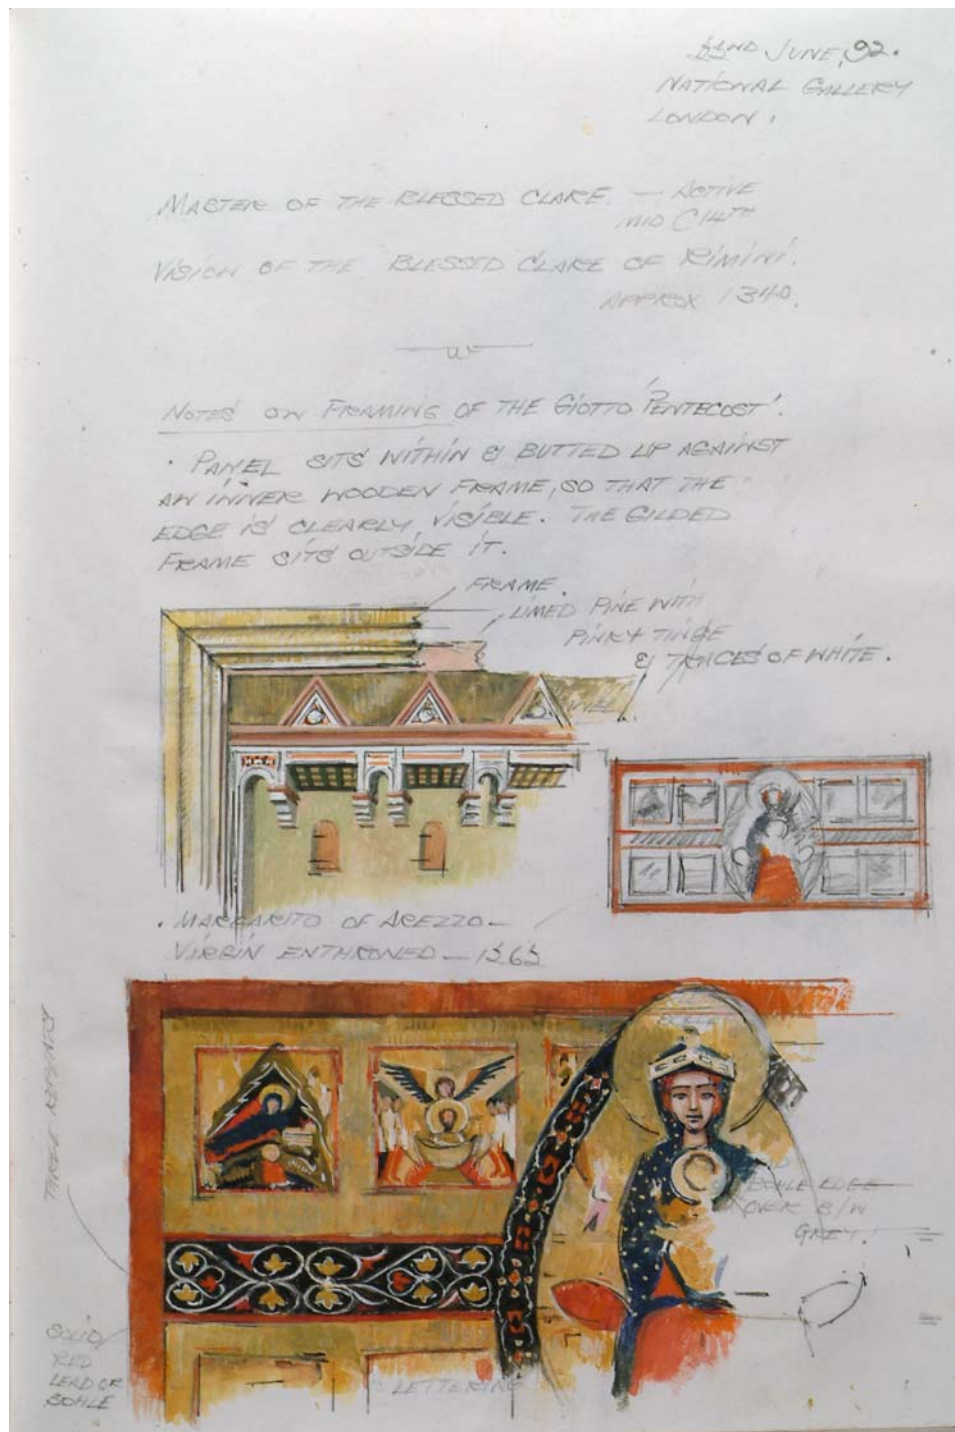 22ND JUNE, 92.
NATIONAL GALLERY
LONDON.
MASTER OF THE BLESSED CLARE. — ACTIVE
MID C14TH
VISION OF THE BLESSED CLARE OF RIMINI.
APPROX 1340.
NOTES ON FRAMING OF THE GIOTTO 'PENTECOST'.
· PANEL SITS WITHIN & BUTTED UP AGAINST
AN INNER WOODEN FRAME, SO THAT THE
EDGE IS CLEARLY VISIBLE. THE GILDED
FRAME SITS OUTSIDE IT.
FRAME.
LIMED PINE WITH
PINKY TINGE
& TRACES OF WHITE.
PANEL
· MARGARITO OF AREZZO —
VIRGIN ENTHRONED — 1262
BOHLE EDGE
OVER B/W
GREY.
SOLID
RED
LEAD OR
BOHLE
LETTERING